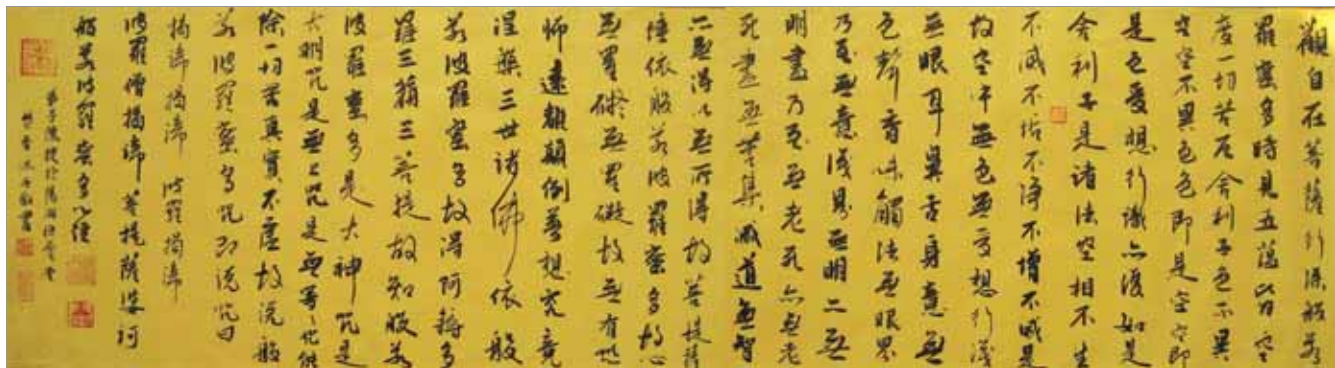 觀自在菩薩行深般若
羅蜜多時見五蘊皆空
度一切苦厄舍利子色不異
空空不異色色即是空空即
是色受想行識亦復如是
舍利子是諸法空相不生
不滅不垢不淨不增不減是
故空中無色無受想行識
無眼耳鼻舌身意無
色聲香味觸法無眼界
乃至無意識界無明亦無
明盡乃至無老死亦無老
死盡無苦集滅道無智
亦無得以無所得故菩提薩
埵依般若波羅蜜多故心
無罣礙無罣礙故無有恐
怖遠離顛倒夢想究竟
涅槃三世諸佛依般
若波羅蜜多故得阿耨多
羅三藐三菩提故知般若
波羅蜜多是大神咒是
大明咒是無上咒是無等等咒能
除一切苦真實不虛故說般
若波羅蜜多咒即說咒曰
揭諦揭諦 波羅揭諦
波羅僧揭諦 菩提薩婆訶
般若波羅蜜多心經